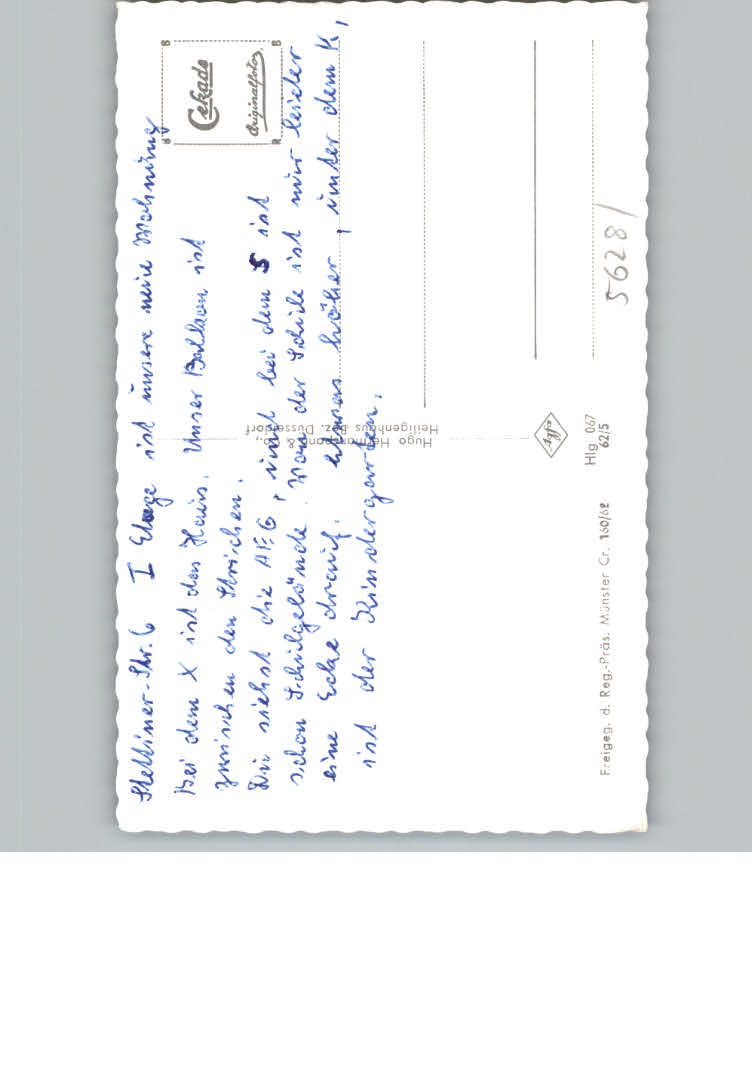 Stettiner-Str. 6 I Etage ist unsere neue Wohnung
Bei dem X ist das Haus. Unser Balkon ist
zwischen den Strichen.
Du siehst die AEG, und bei dem S ist
schon Schulgelände. Von der Schule ist nur leider
eine Ecke drauf. etwas höher, unter dem K,
ist der Kindergarten.
Cekade
Originalfoto
B
B
B
R
Hugo Hermannspann & Co.,
Heiligenhaus Bez. Düsseldorf
Agfa
Hlg 067
62/5
Freigeg. d. Reg.-Präs. Münster Cr. 160/62
5628/